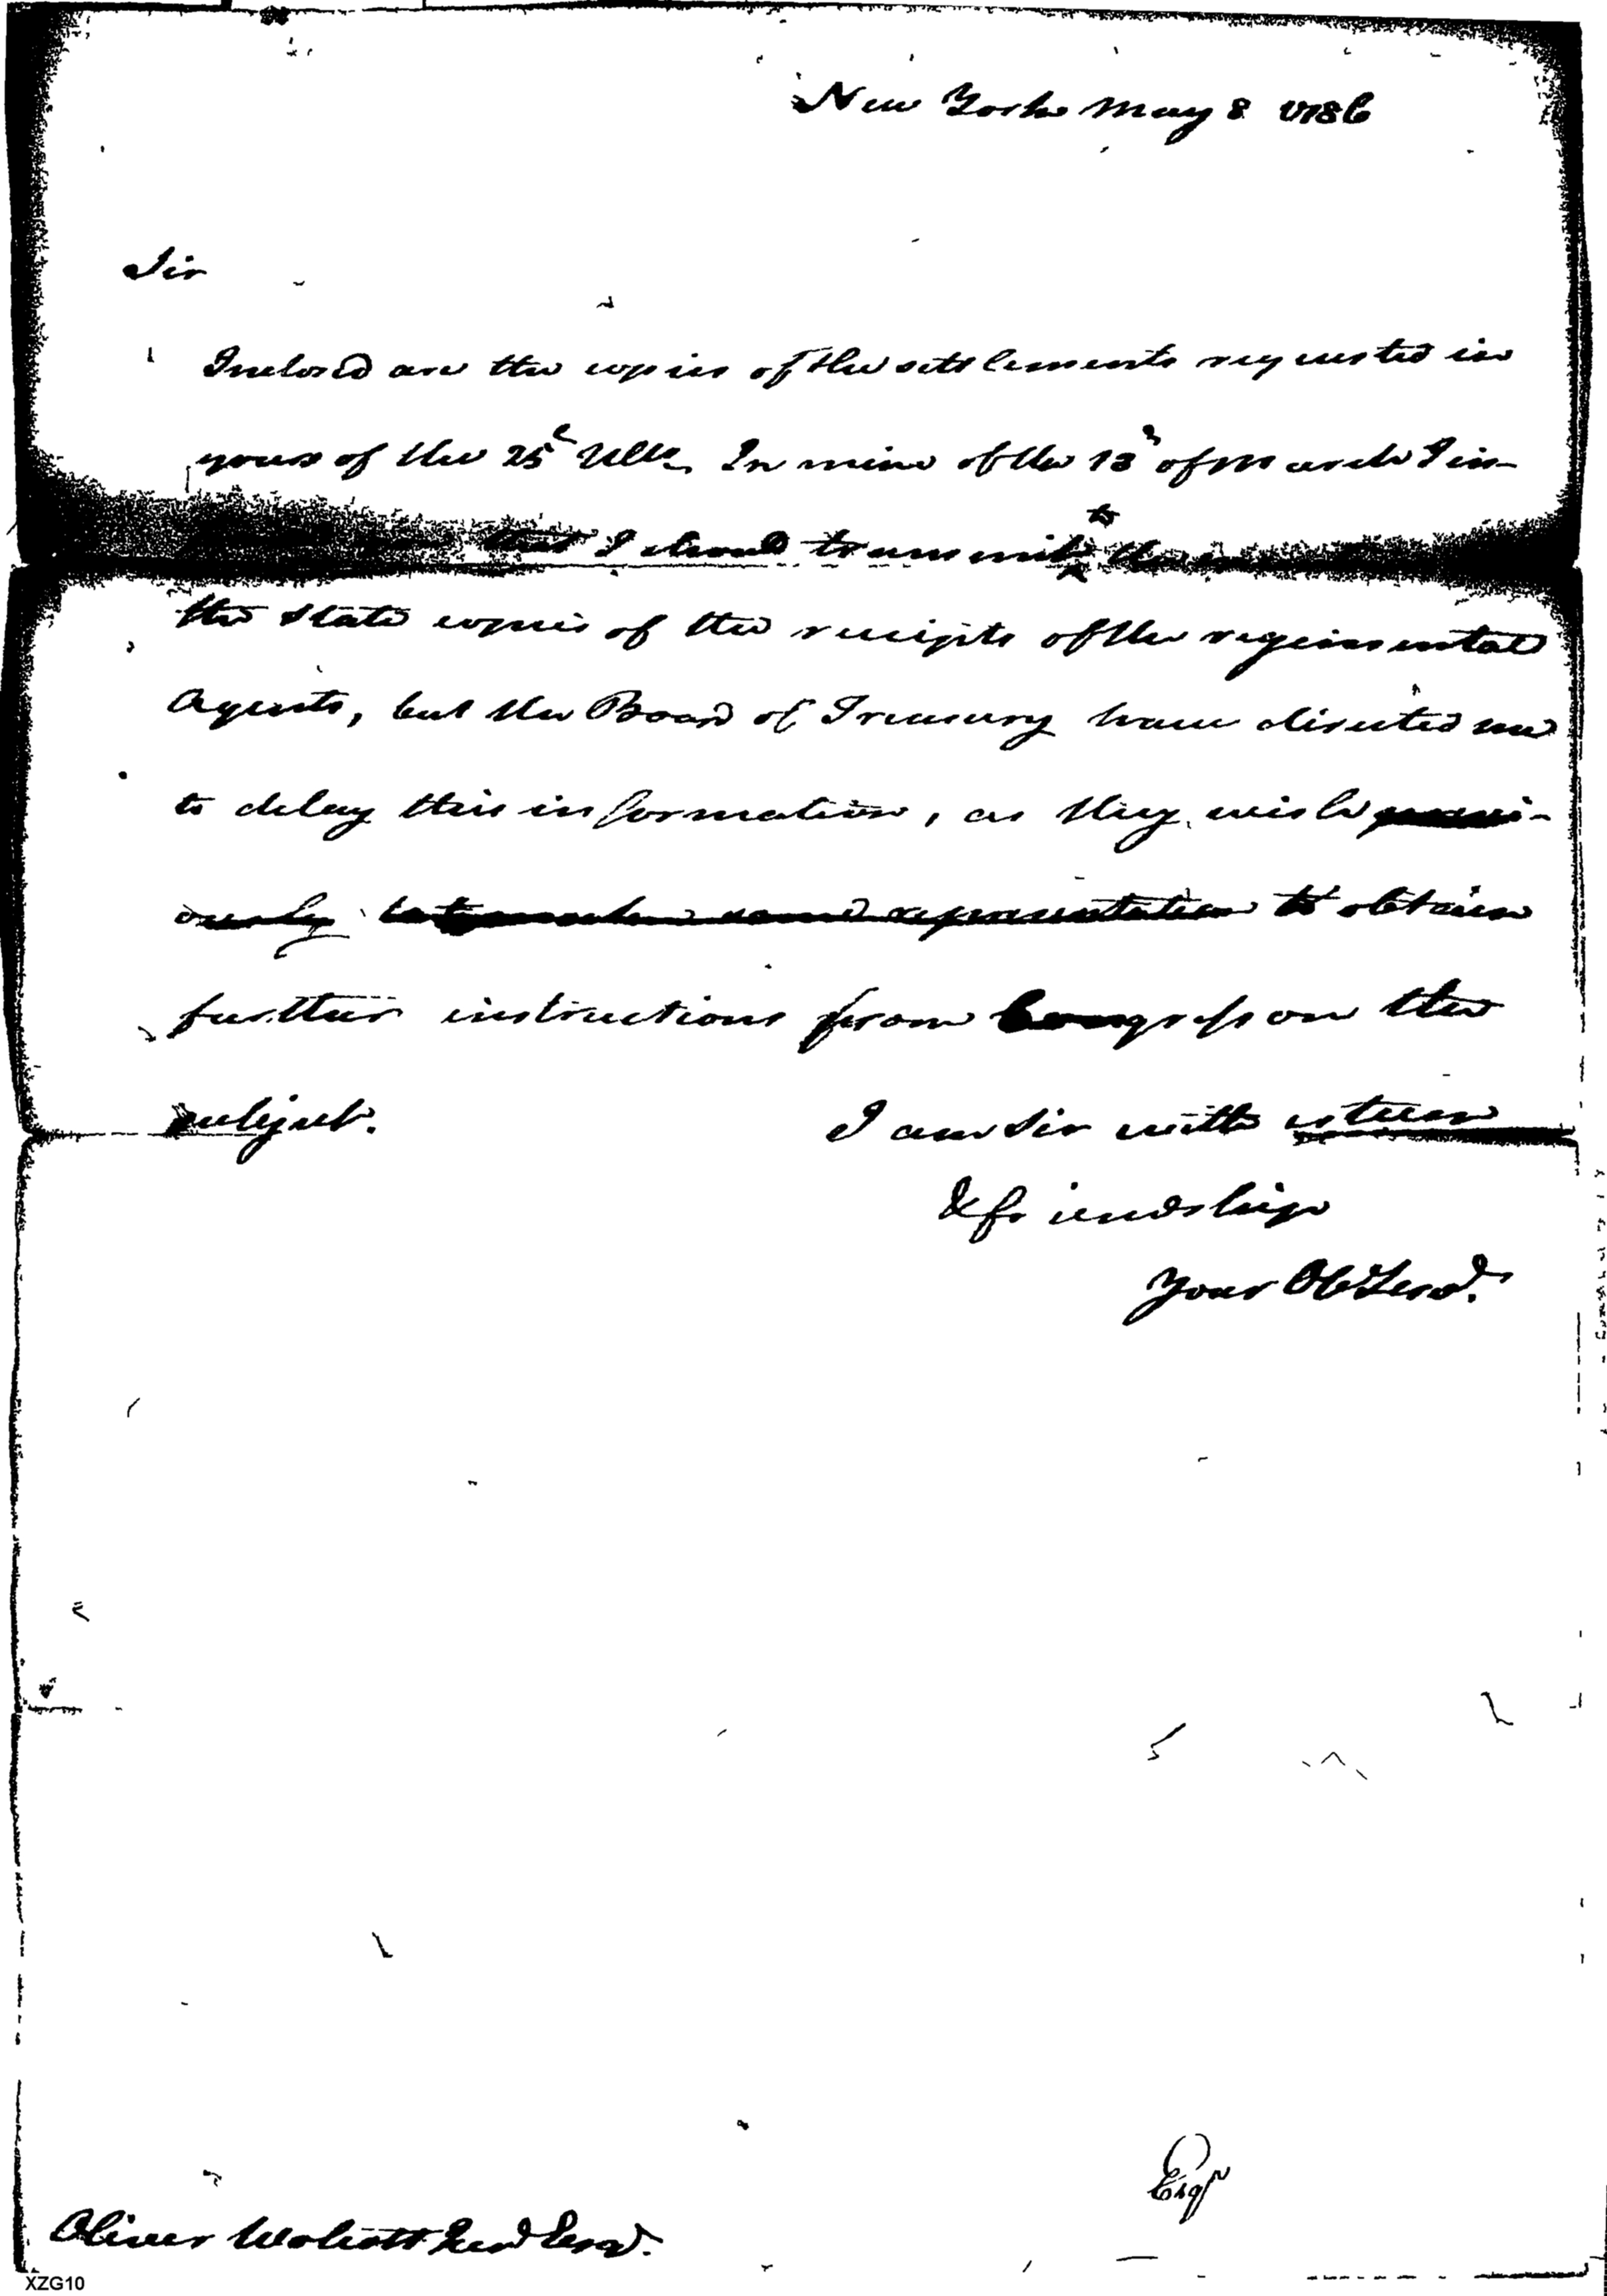 New York May 8 1786
Sir
Inclosed are the copies of the settlements requested in
yours of the 25th Ulto. In mine of the 13 of March I in-
that I should transmit to the
the State copies of the receipts of the regimental
Agents, but the Board of Treasury have directed me
to delay this information, as they wish previ-
ously to make some representation to obtain
further instructions from Congress on the
subject.
I am Sir with esteem
& friendship
Your Ob Servt.
Esqr
Oliver Wolcott Junr Esqr.
XZG10